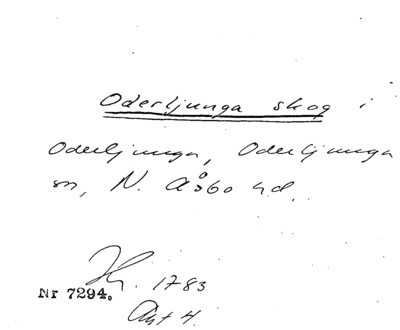 Oderljunga skog i
Oderljunga, Oderljunga
sn, N. Åsbo hd.
Hr. 1783
Nr 7294.
Akt 4.